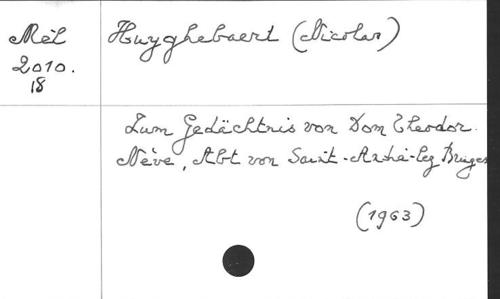 Mél
2010.
18
Huyghebaert (Nicolas)
Zum Gedächtnis von Dom Theodor
Nève, Abt von Saint-André-lez Bruges
(1963)